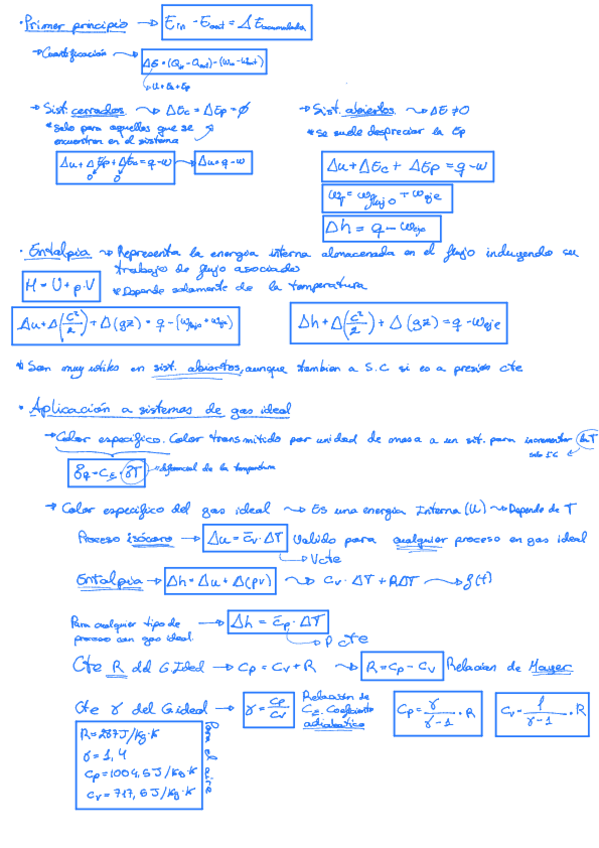 · Primer principio → Ein - Eout = ΔEacumulada
→ Cuantificación
ΔE = (Qin - Qout) - (Win - Wout)
U + Ec + Ep
→ Sist. cerrados ~> ΔEc = ΔEp = ∅
* Solo para aquellos que se
encuentran en el sistema
Δu + ΔEp + ΔEc = q - w → Δu = q - w
0 0
→ Sist. abiertos ~> ΔE ≠ 0
* Se suele despreciar la Ep
Δu + ΔEc + ΔEp = q - w
wT = wflujo + weje
Δh = q - weje
· Entalpia ~> Representa la energia interna almacenada en el flujo incluyendo su
trabajo de flujo asociado
H = U + p·V * Depende solamente de la temperatura
Δu + Δ(c²/2) + Δ(gz) = q - (wflujo + weje)
Δh + Δ(c²/2) + Δ(gz) = q - weje
* Son muy utiles en sist. abiertos, aunque tambien a S.C si es a presión cte
· Aplicación a sistemas de gas ideal
→ Calor especifico. Calor transmitido por unidad de masa a un sist. para incrementar la T
solo 1C
δq = Ce · δT → diferencial de la temperatura
→ Calor especifico del gas ideal ~> Es una energia Interna (U) ~> Depende de T
Proceso isócoro → Δu = c̄v · ΔT Valido para cualquier proceso en gas ideal
→ V cte
Entalpia → Δh = Δu + Δ(pv) ~> cv · ΔT + RΔT → f(t)
Para cualquier tipo de
proceso con gas ideal → Δh = c̄p · ΔT
→ P cte
Cte R del G.Ideal → Cp = Cv + R ~> R = Cp - Cv Relacion de Mayer
Cte γ del G ideal → γ = cp/cv Relación de
Ce. Coeficiente
adiabatico
Cp = γ/γ-1 · R
Cv = 1/γ-1 · R
R = 287 J/kg·K
γ = 1,4
Cp = 1004,5 J/kg·K
Cv = 717,5 J/kg·K
Para el aire